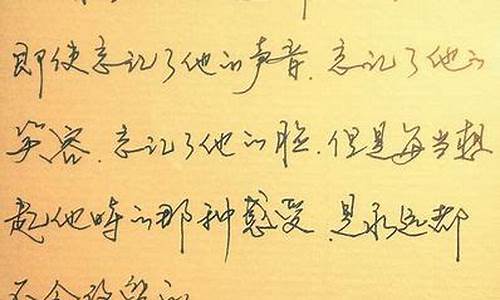 即使忘记了他的声音.忘记了他的
笑容.忘记了他的脸.但是每当想
起他时的那种感受.是永远都
不会改变的